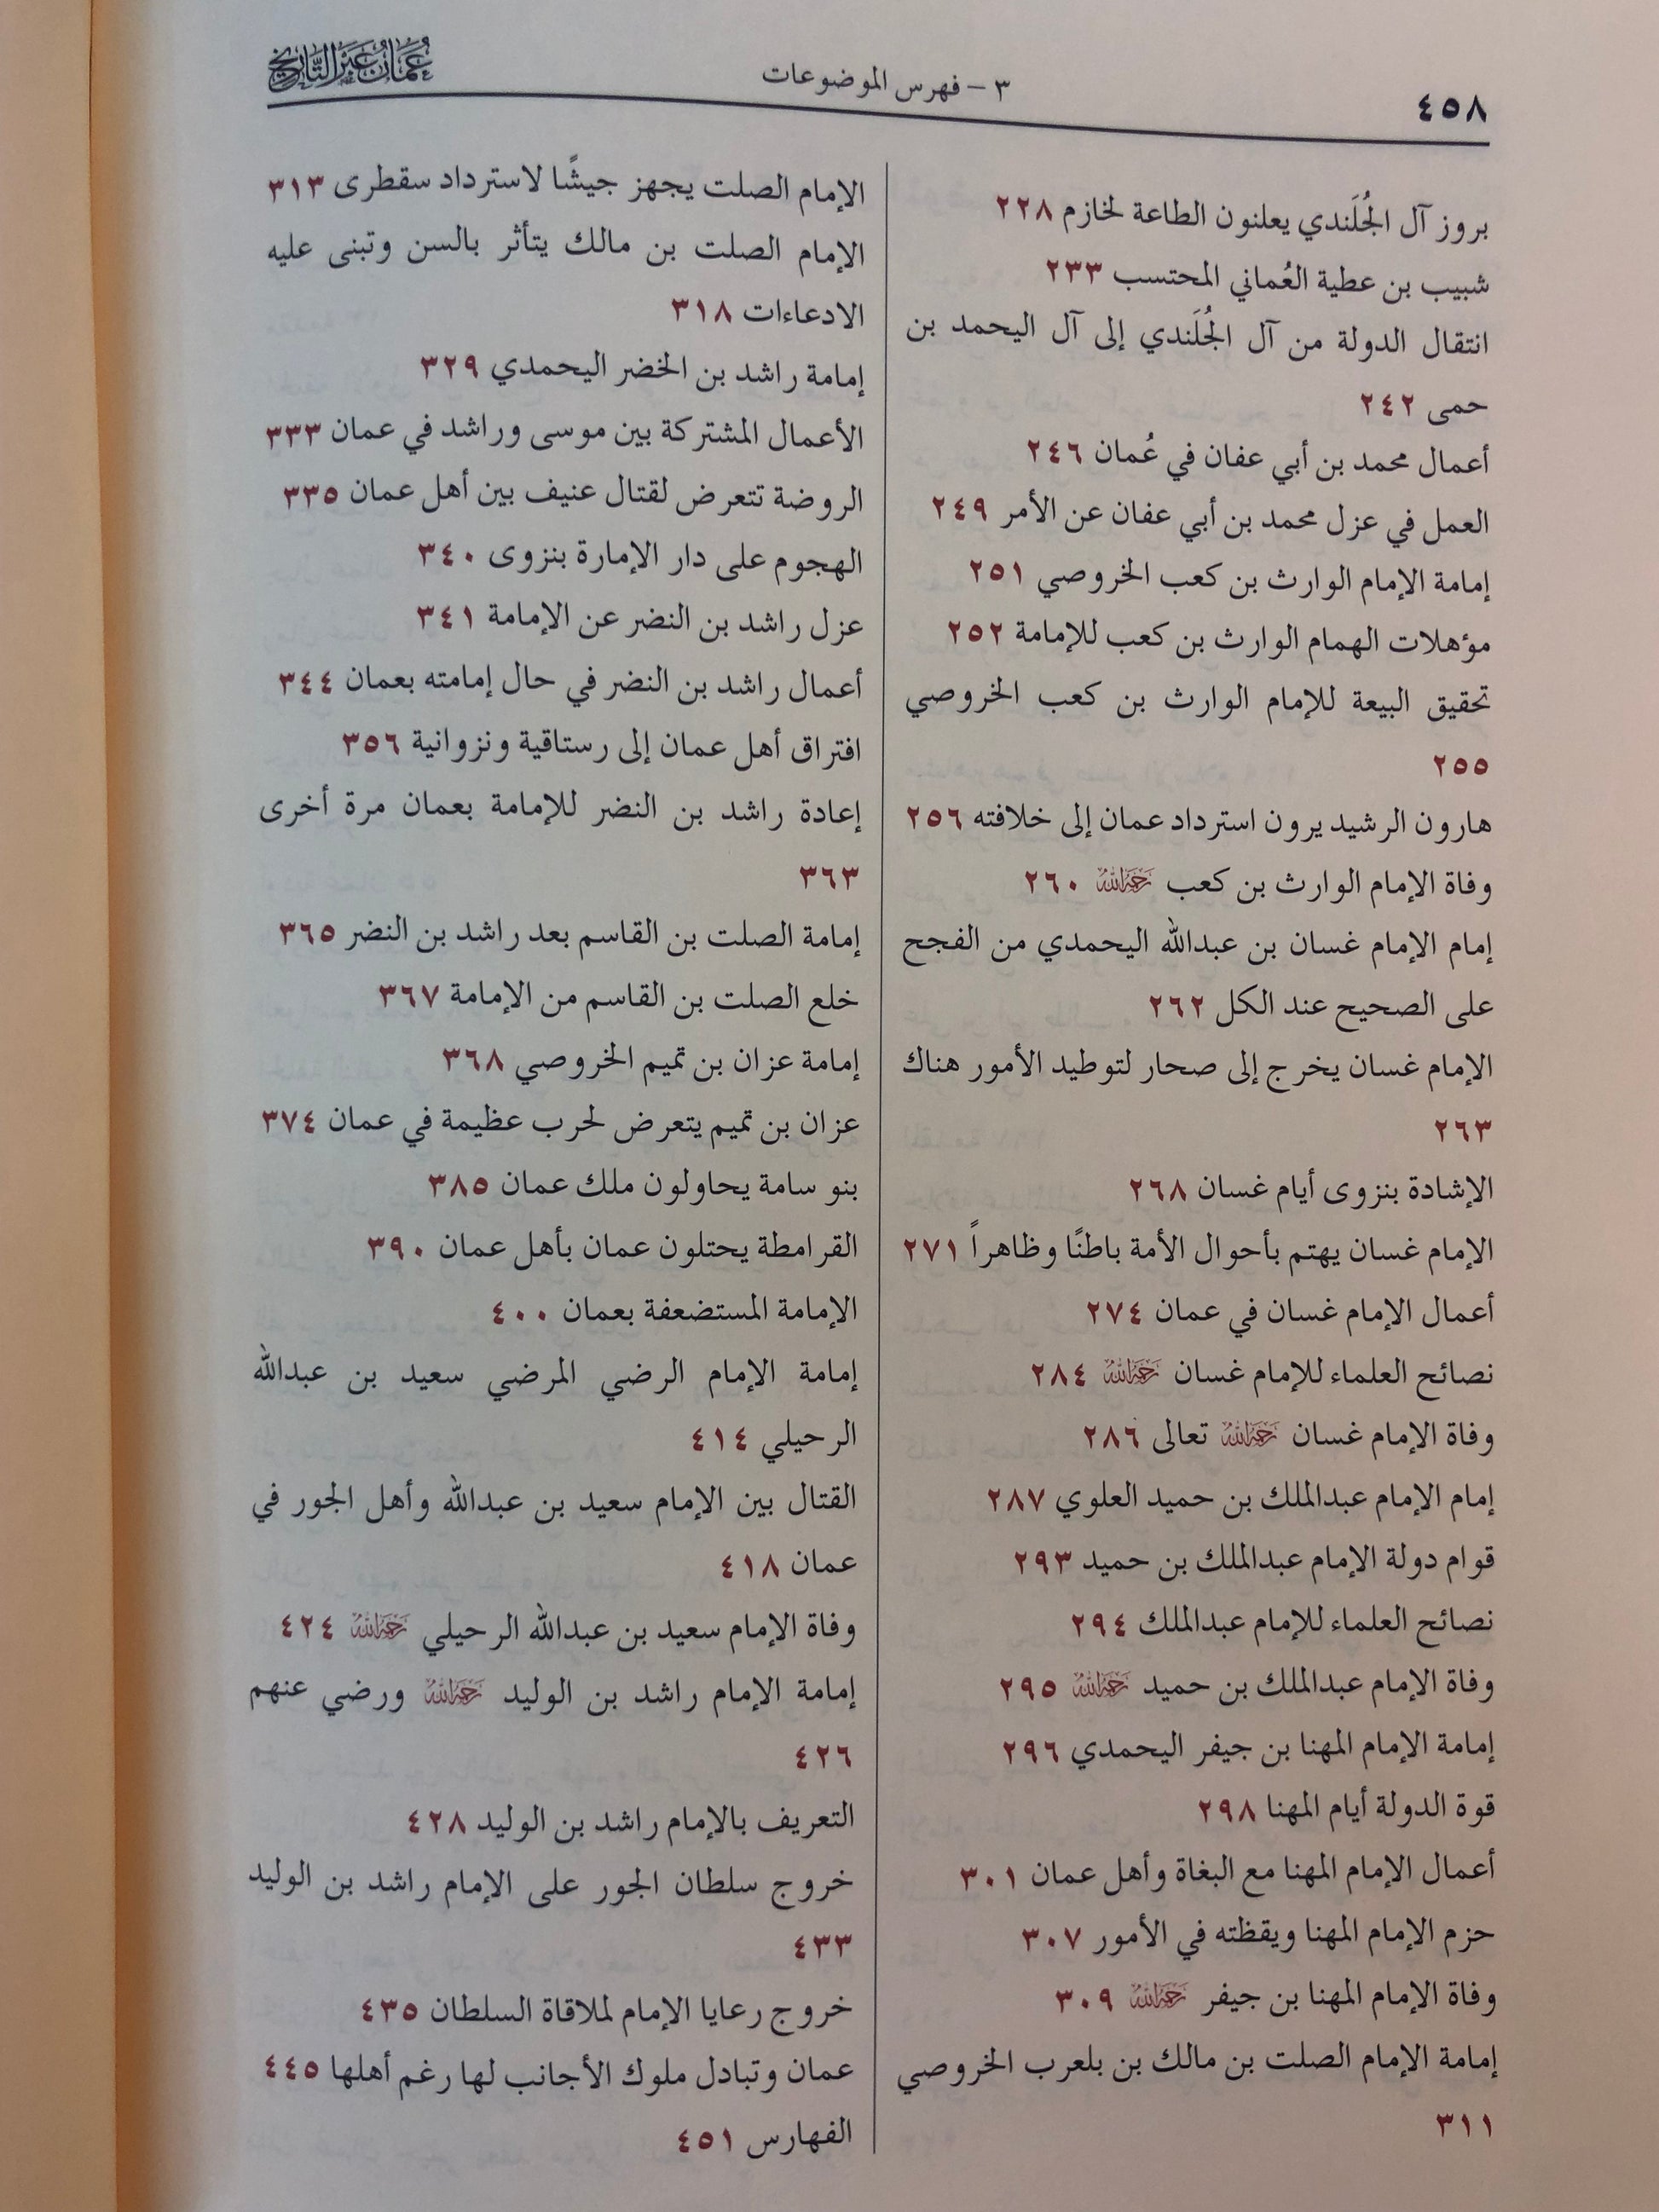 ٤٥٨
٣ – فهرس الموضوعات
عُمَان عَبْرَ التَّارِيخ
بروز آل الجُلَندي يعلنون الطاعة لخازم ٢٢٨
شبيب بن عطية العُماني المحتسب ٢٣٣
انتقال الدولة من آل الجُلَندي إلى آل اليحمد بن
حمى ٢٤٢
أعمال محمد بن أبي عفان في عُمان ٢٤٦
العمل في عزل محمد بن أبي عفان عن الأمر ٢٤٩
إمامة الإمام الوارث بن كعب الخروصي ٢٥١
مؤهلات الهمام الوارث بن كعب للإمامة ٢٥٢
تحقيق البيعة للإمام الوارث بن كعب الخروصي
٢٥٥
هارون الرشيد يرون استرداد عمان إلى خلافته ٢٥٦
وفاة الإمام الوارث بن كعب رَحِمَهُ اللهُ ٢٦٠
إمام الإمام غسان بن عبدالله اليحمدي من الفجح
على الصحيح عند الكل ٢٦٢
الإمام غسان يخرج إلى صحار لتوطيد الأمور هناك
٢٦٣
الإشادة بنزوى أيام غسان ٢٦٨
الإمام غسان يهتم بأحوال الأمة باطنًا وظاهراً ٢٧١
أعمال الإمام غسان في عمان ٢٧٤
نصائح العلماء للإمام غسان رَحِمَهُ اللهُ ٢٨٤
وفاة الإمام غسان رَحِمَهُ اللهُ تعالى ٢٨٦
إمام الإمام عبدالملك بن حميد العلوي ٢٨٧
قوام دولة الإمام عبدالملك بن حميد ٢٩٣
نصائح العلماء للإمام عبدالملك ٢٩٤
وفاة الإمام عبدالملك بن حميد رَحِمَهُ اللهُ ٢٩٥
إمامة الإمام المهنا بن جيفر اليحمدي ٢٩٦
قوة الدولة أيام المهنا ٢٩٨
أعمال الإمام المهنا مع البغاة وأهل عمان ٣٠١
حزم الإمام المهنا ويقظته في الأمور ٣٠٧
وفاة الإمام المهنا بن جيفر رَحِمَهُ اللهُ ٣٠٩
إمامة الإمام الصلت بن مالك بن بلعرب الخروصي
٣١١
الإمام الصلت يجهز جيشًا لاسترداد سقطرى ٣١٣
الإمام الصلت بن مالك يتأثر بالسن وتبنى عليه
الادعاءات ٣١٨
إمامة راشد بن الخضر اليحمدي ٣٢٩
الأعمال المشتركة بين موسى وراشد في عمان ٣٣٣
الروضة تتعرض لقتال عنيف بين أهل عمان ٣٣٥
الهجوم على دار الإمارة بنزوى ٣٤٠
عزل راشد بن النضر عن الإمامة ٣٤١
أعمال راشد بن النضر في حال إمامته بعمان ٣٤٤
افتراق أهل عمان إلى رستاقية ونزوانية ٣٥٦
إعادة راشد بن النضر للإمامة بعمان مرة أخرى
٣٦٣
إمامة الصلت بن القاسم بعد راشد بن النضر ٣٦٥
خلع الصلت بن القاسم من الإمامة ٣٦٧
إمامة عزان بن تميم الخروصي ٣٦٨
عزان بن تميم يتعرض لحرب عظيمة في عمان ٣٧٤
بنو سامة يحاولون ملك عمان ٣٨٥
القرامطة يحتلون عمان بأهل عمان ٣٩٠
الإمامة المستضعفة بعمان ٤٠٠
إمامة الإمام الرضي المرضي سعيد بن عبدالله
الرحيلي ٤١٤
القتال بين الإمام سعيد بن عبدالله وأهل الجور في
عمان ٤١٨
وفاة الإمام سعيد بن عبدالله الرحيلي رَحِمَهُ اللهُ ٤٢٤
إمامة الإمام راشد بن الوليد رَحِمَهُ اللهُ ورضي عنهم
٤٢٦
التعريف بالإمام راشد بن الوليد ٤٢٨
خروج سلطان الجور على الإمام راشد بن الوليد
٤٣٣
خروج رعايا الإمام لملاقاة السلطان ٤٣٥
عمان وتبادل ملوك الأجانب لها رغم أهلها ٤٤٥
الفهارس ٤٥١